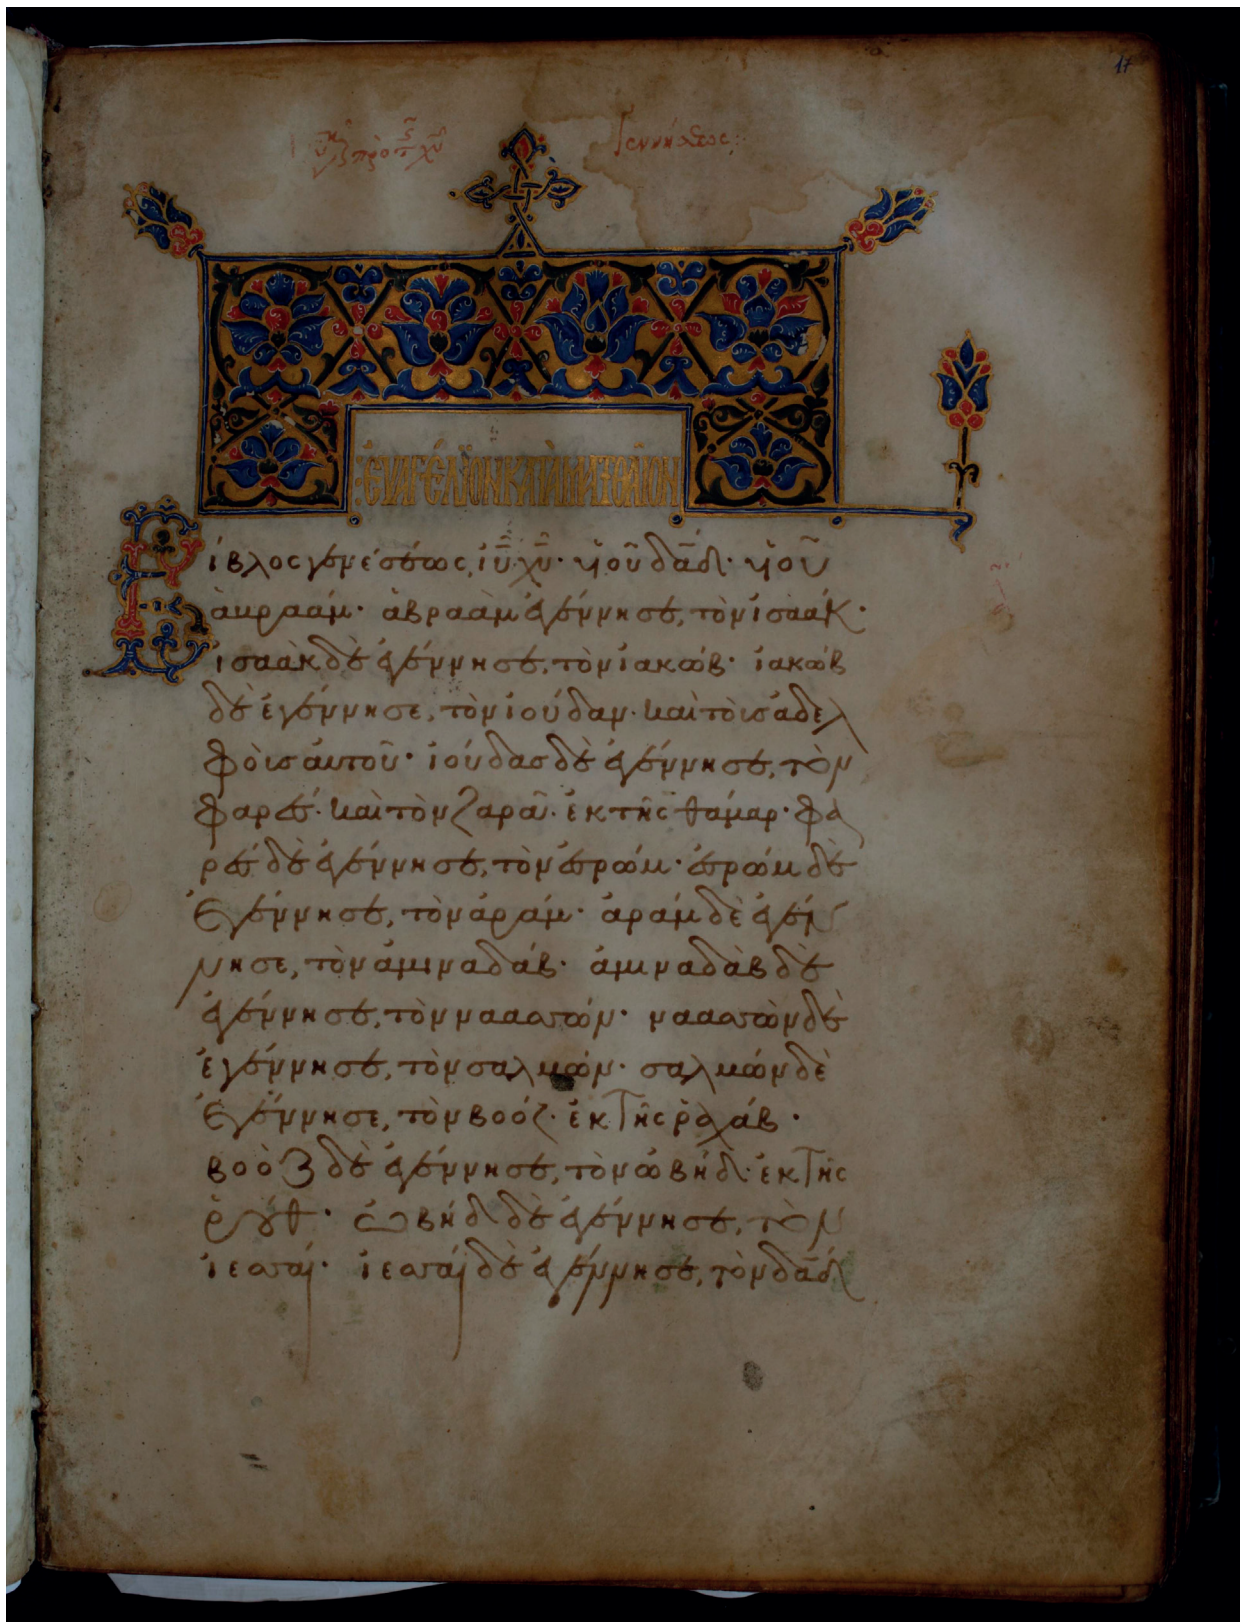 17
ΕΥΑΓΓΕΛΙΟΝ ΚΑΤΑ ΜΑΤΘΑΙΟΝ
Βίβλος γενέσεως, ἰῡ χῡ· υἱοῦ δᾱδ· υἱοῦ
ἀβραάμ· ἀβραὰμ ἐγέννησε, τὸν ἰσαάκ·
ἰσαὰκ δὲ ἐγέννησε, τὸν ἰακώβ· ἰακώβ
δὲ ἐγέννησε, τὸν ἰούδαν· καὶ τοὺς ἀδελ
φοὺς αὐτοῦ· ἰούδας δὲ ἐγέννησε, τὸν
φαρές· καὶ τὸν ζαρά· ἐκ τῆς θάμαρ· φα
ρὲς δὲ ἐγέννησε, τὸν ἐσρώμ· ἐσρὼμ δὲ
ἐγέννησε, τὸν ἀράμ· ἀρὰμ δὲ ἐγέν
νησε, τὸν ἀμιναδάβ· ἀμιναδὰβ δὲ
ἐγέννησε, τὸν ναασσών· ναασσὼν δὲ
ἐγέννησε, τὸν σαλμών· σαλμὼν δὲ
ἐγέννησε, τὸν βοόζ· ἐκ τῆς ῥαχάβ·
βοὸζ δὲ ἐγέννησε, τὸν ὠβήδ· ἐκ τῆς
ῥούθ· ὠβὴδ δὲ ἐγέννησε, τὸν
ἰεσσαί· ἰεσσαὶ δὲ ἐγέννησε, τὸν δᾱδ